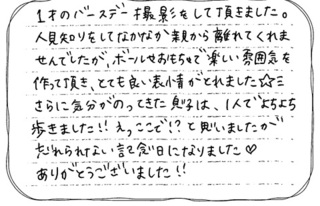 1才のバースデー撮影をして頂きました。
人見知りをしてなかなか親から離れてくれま
せんでしたが、ボールやおもちゃで楽しい雰囲気を
作って頂き、とても良い表情がとれました☆彡
さらに気分がのってきた息子は、1人でよちよち
歩きました!! えっここで!? と思いましたが
忘れられない記念日になりました♡
ありがとうございました!!